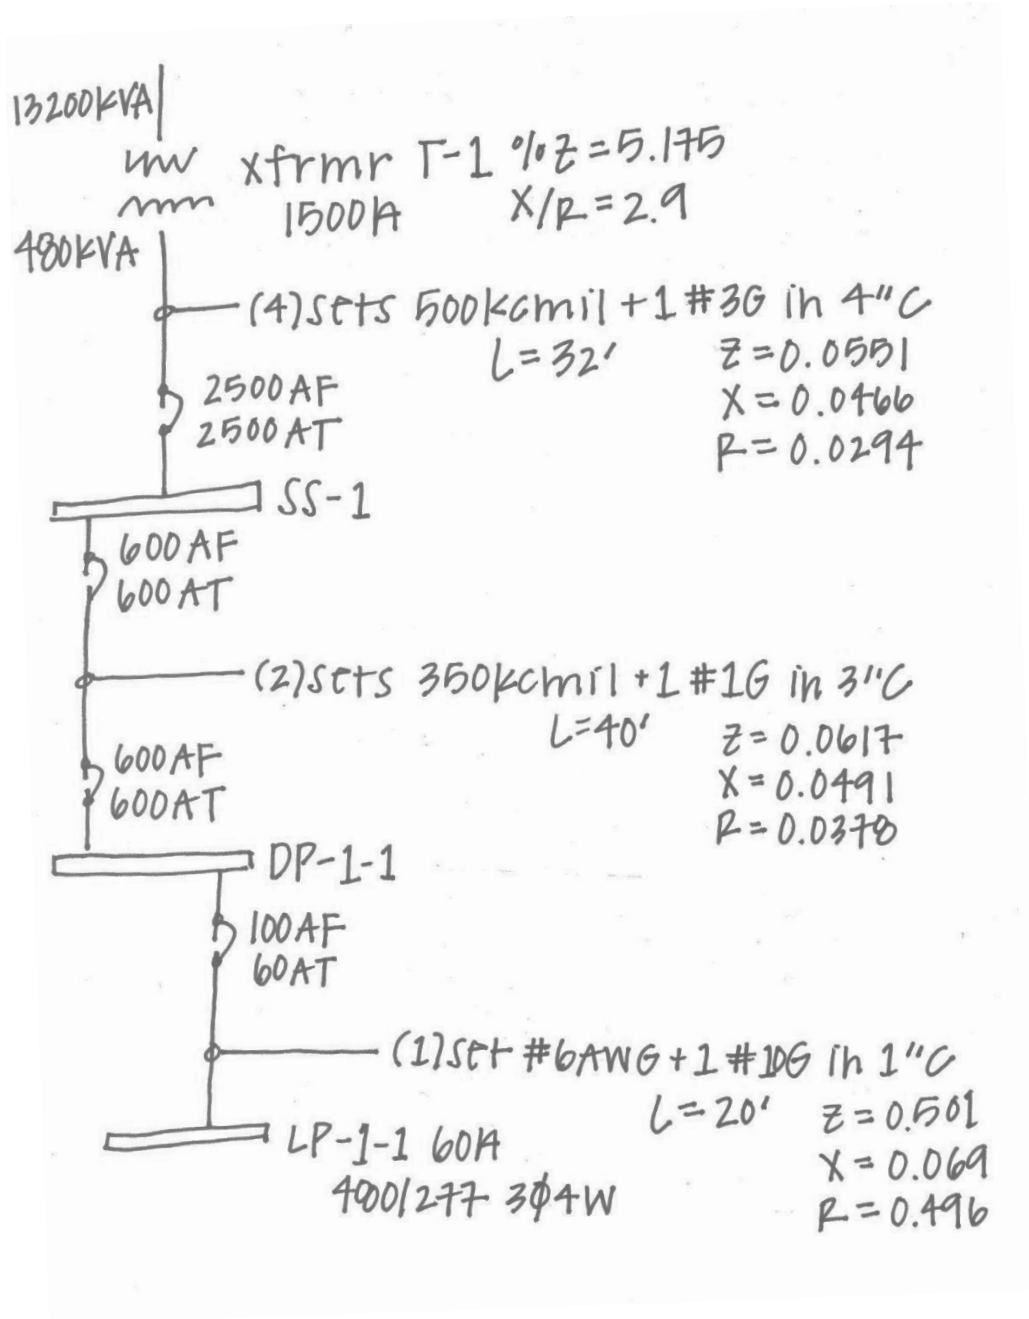 13200KVA
xfrmr T-1 %Z=5.175
1500A X/R=2.9
480KVA
(4)sets 500kcmil +1 #3G in 4"C
L=32' Z=0.0551
X=0.0466
R=0.0294
2500AF
2500AT
SS-1
600AF
600AT
(2)sets 350kcmil +1 #1G in 3"C
L=40' Z=0.0617
X=0.0491
R=0.0378
600AF
600AT
DP-1-1
100AF
60AT
(1)set #6AWG +1 #10G in 1"C
L=20' Z=0.501
X=0.069
R=0.496
LP-1-1 60A
480/277 3φ4W